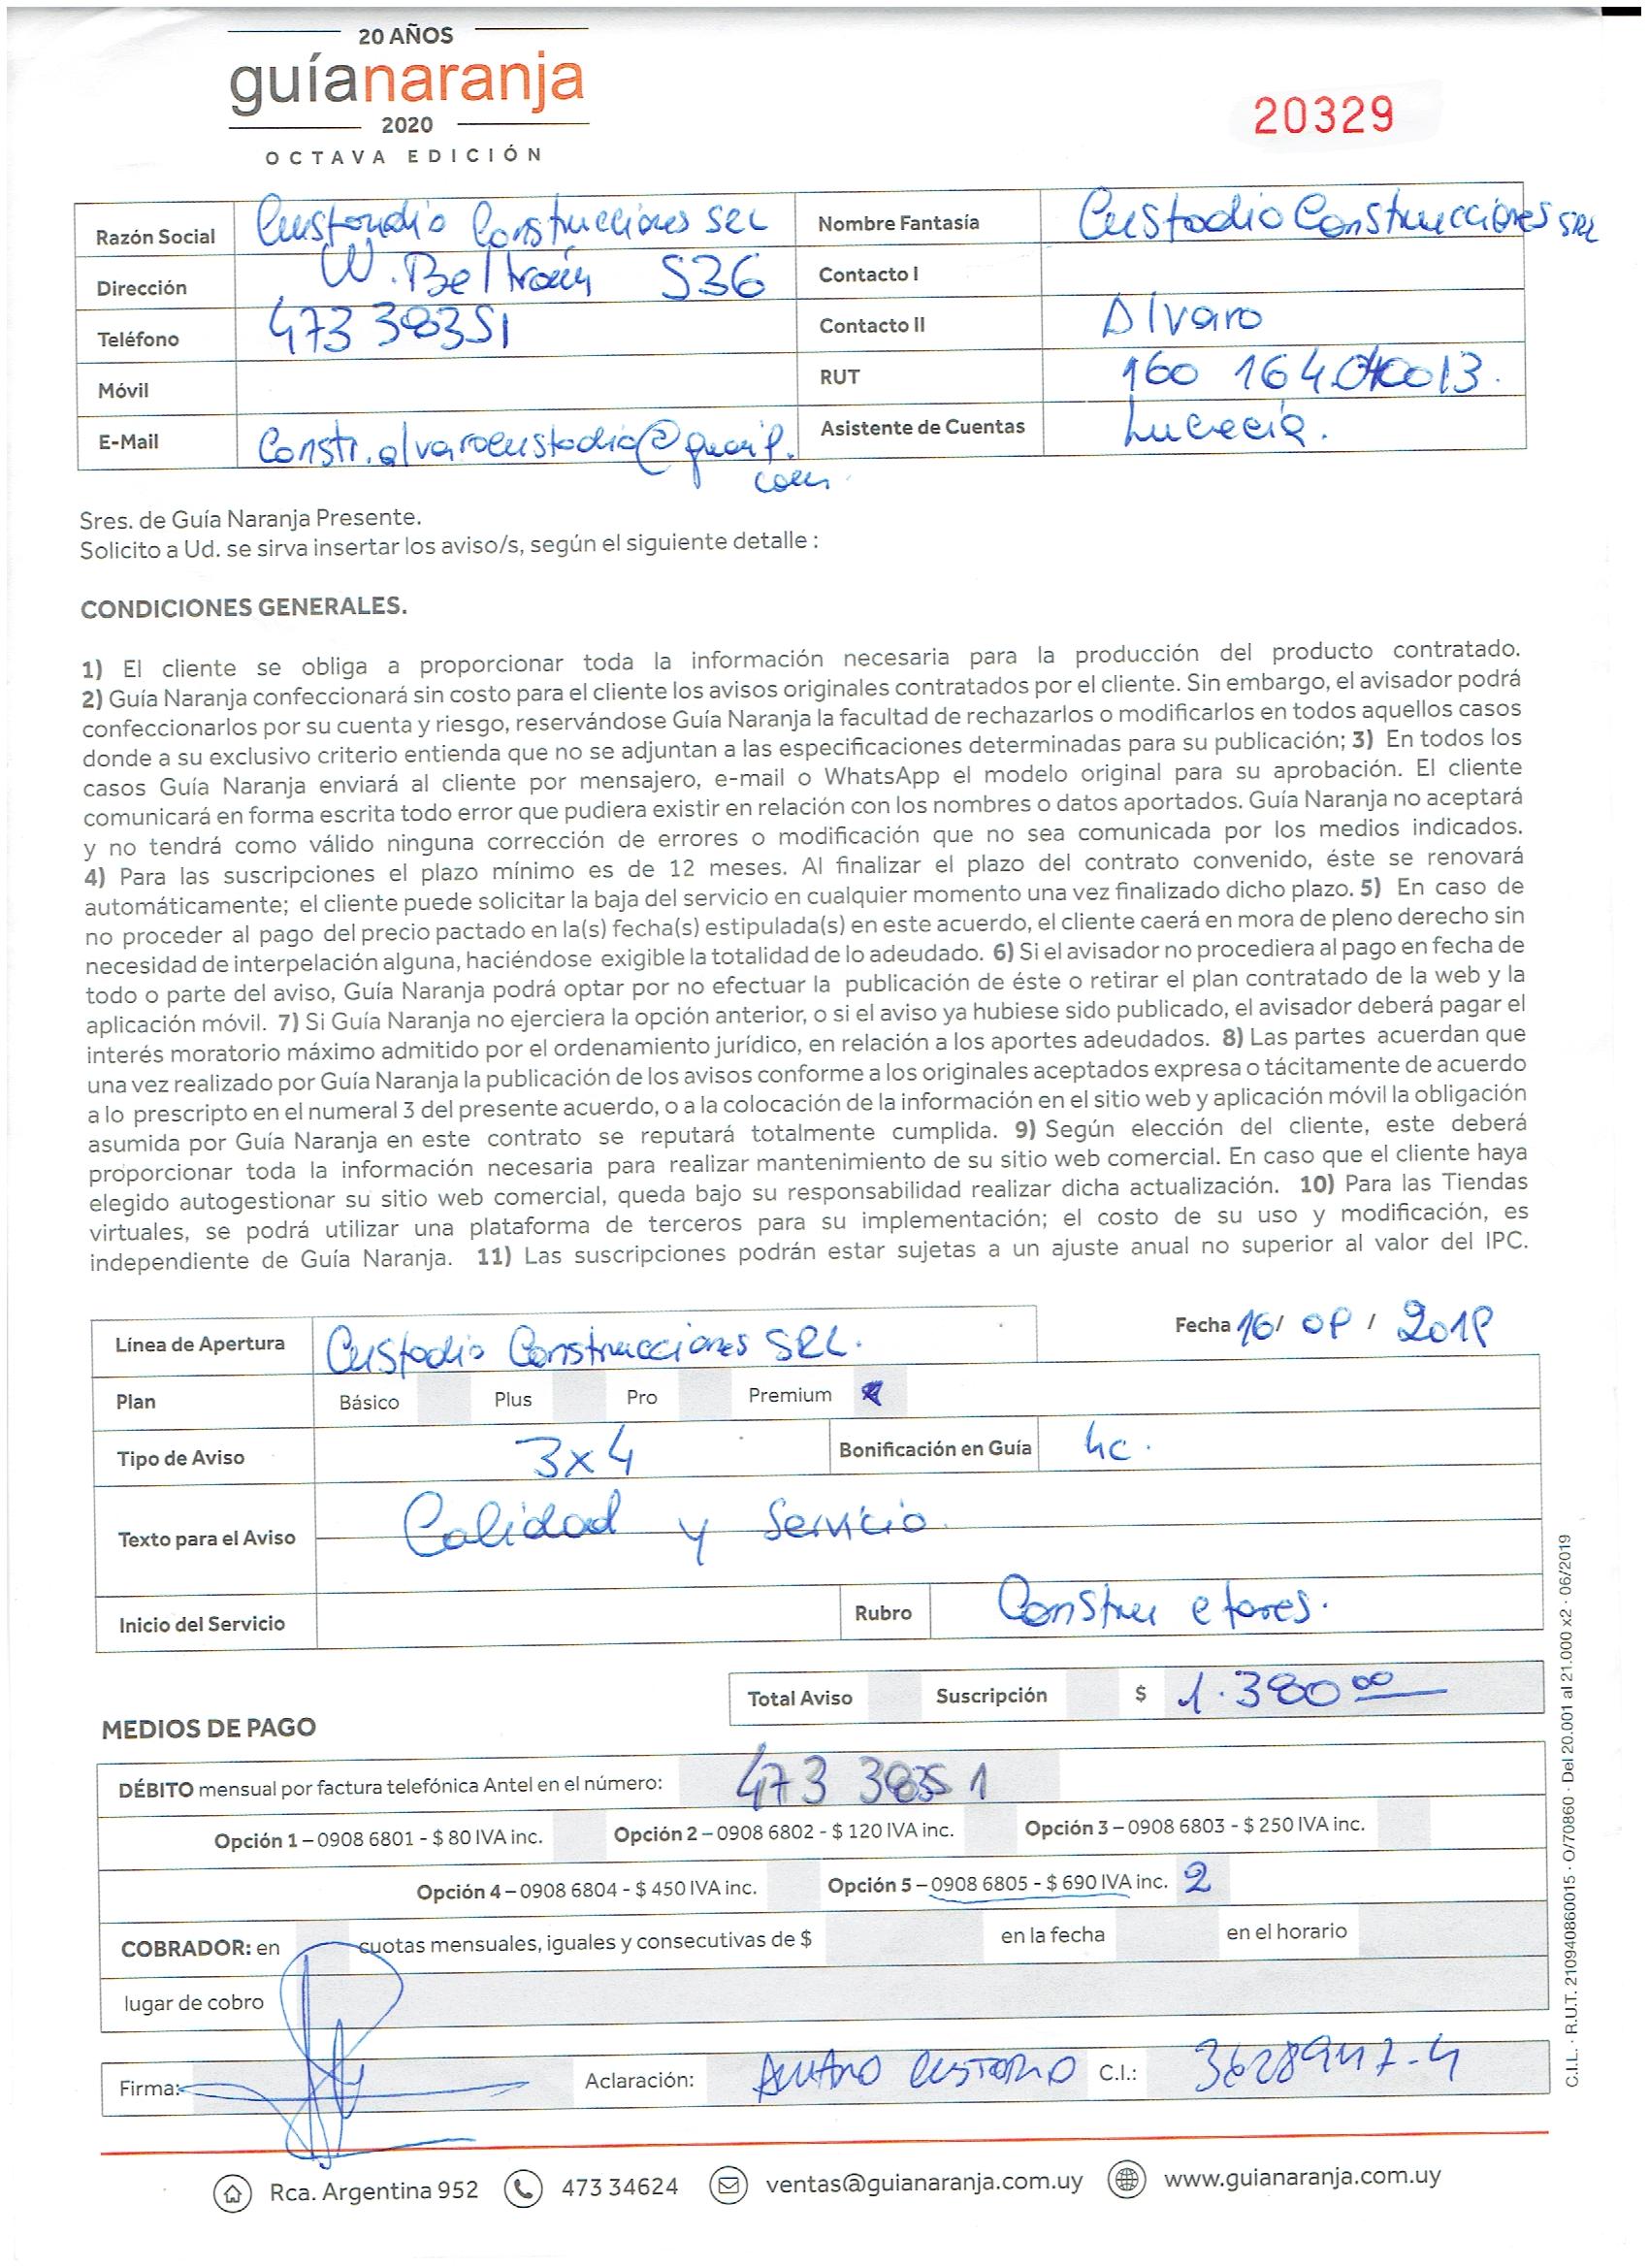 20 AÑOS
guíanaranja
2020
OCTAVA EDICIÓN
20329
Razón Social Custodio Construcciones SRL Nombre Fantasía Custodio Construcciones SRL
Dirección W. Beltrán 536 Contacto I
Teléfono 473 38351 Contacto II Alvaro
Móvil RUT 160 164040013.
E-Mail Constr.alvarocustodio@gmail. Asistente de Cuentas Lucecia.
com
Sres. de Guía Naranja Presente.
Solicito a Ud. se sirva insertar los aviso/s, según el siguiente detalle :
CONDICIONES GENERALES.
1) El cliente se obliga a proporcionar toda la información necesaria para la producción del producto contratado.
2) Guía Naranja confeccionará sin costo para el cliente los avisos originales contratados por el cliente. Sin embargo, el avisador podrá
confeccionarlos por su cuenta y riesgo, reservándose Guía Naranja la facultad de rechazarlos o modificarlos en todos aquellos casos
donde a su exclusivo criterio entienda que no se adjuntan a las especificaciones determinadas para su publicación; 3) En todos los
casos Guía Naranja enviará al cliente por mensajero, e-mail o WhatsApp el modelo original para su aprobación. El cliente
comunicará en forma escrita todo error que pudiera existir en relación con los nombres o datos aportados. Guía Naranja no aceptará
y no tendrá como válido ninguna corrección de errores o modificación que no sea comunicada por los medios indicados.
4) Para las suscripciones el plazo mínimo es de 12 meses. Al finalizar el plazo del contrato convenido, éste se renovará
automáticamente; el cliente puede solicitar la baja del servicio en cualquier momento una vez finalizado dicho plazo. 5) En caso de
no proceder al pago del precio pactado en la(s) fecha(s) estipulada(s) en este acuerdo, el cliente caerá en mora de pleno derecho sin
necesidad de interpelación alguna, haciéndose exigible la totalidad de lo adeudado. 6) Si el avisador no procediera al pago en fecha de
todo o parte del aviso, Guía Naranja podrá optar por no efectuar la publicación de éste o retirar el plan contratado de la web y la
aplicación móvil. 7) Si Guía Naranja no ejerciera la opción anterior, o si el aviso ya hubiese sido publicado, el avisador deberá pagar el
interés moratorio máximo admitido por el ordenamiento jurídico, en relación a los aportes adeudados. 8) Las partes acuerdan que
una vez realizado por Guía Naranja la publicación de los avisos conforme a los originales aceptados expresa o tácitamente de acuerdo
a lo prescripto en el numeral 3 del presente acuerdo, o a la colocación de la información en el sitio web y aplicación móvil la obligación
asumida por Guía Naranja en este contrato se reputará totalmente cumplida. 9) Según elección del cliente, este deberá
proporcionar toda la información necesaria para realizar mantenimiento de su sitio web comercial. En caso que el cliente haya
elegido autogestionar su sitio web comercial, queda bajo su responsabilidad realizar dicha actualización. 10) Para las Tiendas
virtuales, se podrá utilizar una plataforma de terceros para su implementación; el costo de su uso y modificación, es
independiente de Guía Naranja. 11) Las suscripciones podrán estar sujetas a un ajuste anual no superior al valor del IPC.
Línea de Apertura Custodio Construcciones SRL. Fecha 16/ 09 / 2019
Plan Básico Plus Pro Premium
Tipo de Aviso 3x4 Bonificación en Guía 4c.
Texto para el Aviso Calidad y Servicio.
Inicio del Servicio Rubro Constructores.
Total Aviso Suscripción $ 1.380 00
MEDIOS DE PAGO
DÉBITO mensual por factura telefónica Antel en el número: 473 38351
Opción 1 – 0908 6801 - $ 80 IVA inc. Opción 2 – 0908 6802 - $ 120 IVA inc. Opción 3 – 0908 6803 - $ 250 IVA inc.
Opción 4 – 0908 6804 - $ 450 IVA inc. Opción 5 – 0908 6805 - $ 690 IVA inc. 2
COBRADOR: en cuotas mensuales, iguales y consecutivas de $ en la fecha en el horario
lugar de cobro
Firma: Aclaración: ALVARO CUSTODIO C.I.: 3628947-4
Rca. Argentina 952 473 34624 ventas@guianaranja.com.uy www.guianaranja.com.uy
C.I.L. · R.U.T. 210940860015 · O/70860 · Del 20.001 al 21.000 x2 · 06/2019